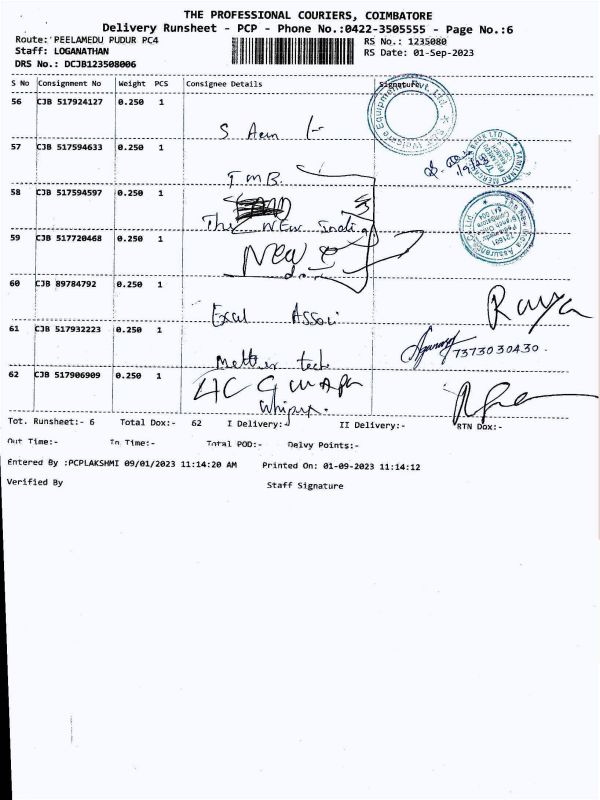 THE PROFESSIONAL COURIERS, COIMBATORE
Delivery Runsheet - PCP - Phone No.:0422-3505555 - Page No.:6
Route: PEELAMEDU PUDUR PC4
RS No.: 1235080
Staff: LOGANATHAN
RS Date: 01-Sep-2023
DRS No.: DCJB123508006
S No Consignment No Weight PCS Consignee Details Signature
56 CJB 517924127 0.250 1
57 CJB 517594633 0.250 1
TMB
58 CJB 517594597 0.250 1
The New India
59 CJB 517720468 0.250 1
New
60 CJB 89784792 0.250 1
Excel Assoi
61 CJB 517932223 0.250 1
7373030430
Mettler tech
62 CJB 517906909 0.250 1
Tot. Runsheet:- 6 Total Dox:- 62 I Delivery:- II Delivery:- RTN Dox:-
Out Time:- In Time:- Total POD:- Delvy Points:-
Entered By :PCPLAKSHMI 09/01/2023 11:14:20 AM Printed On: 01-09-2023 11:14:12
Verified By Staff Signature